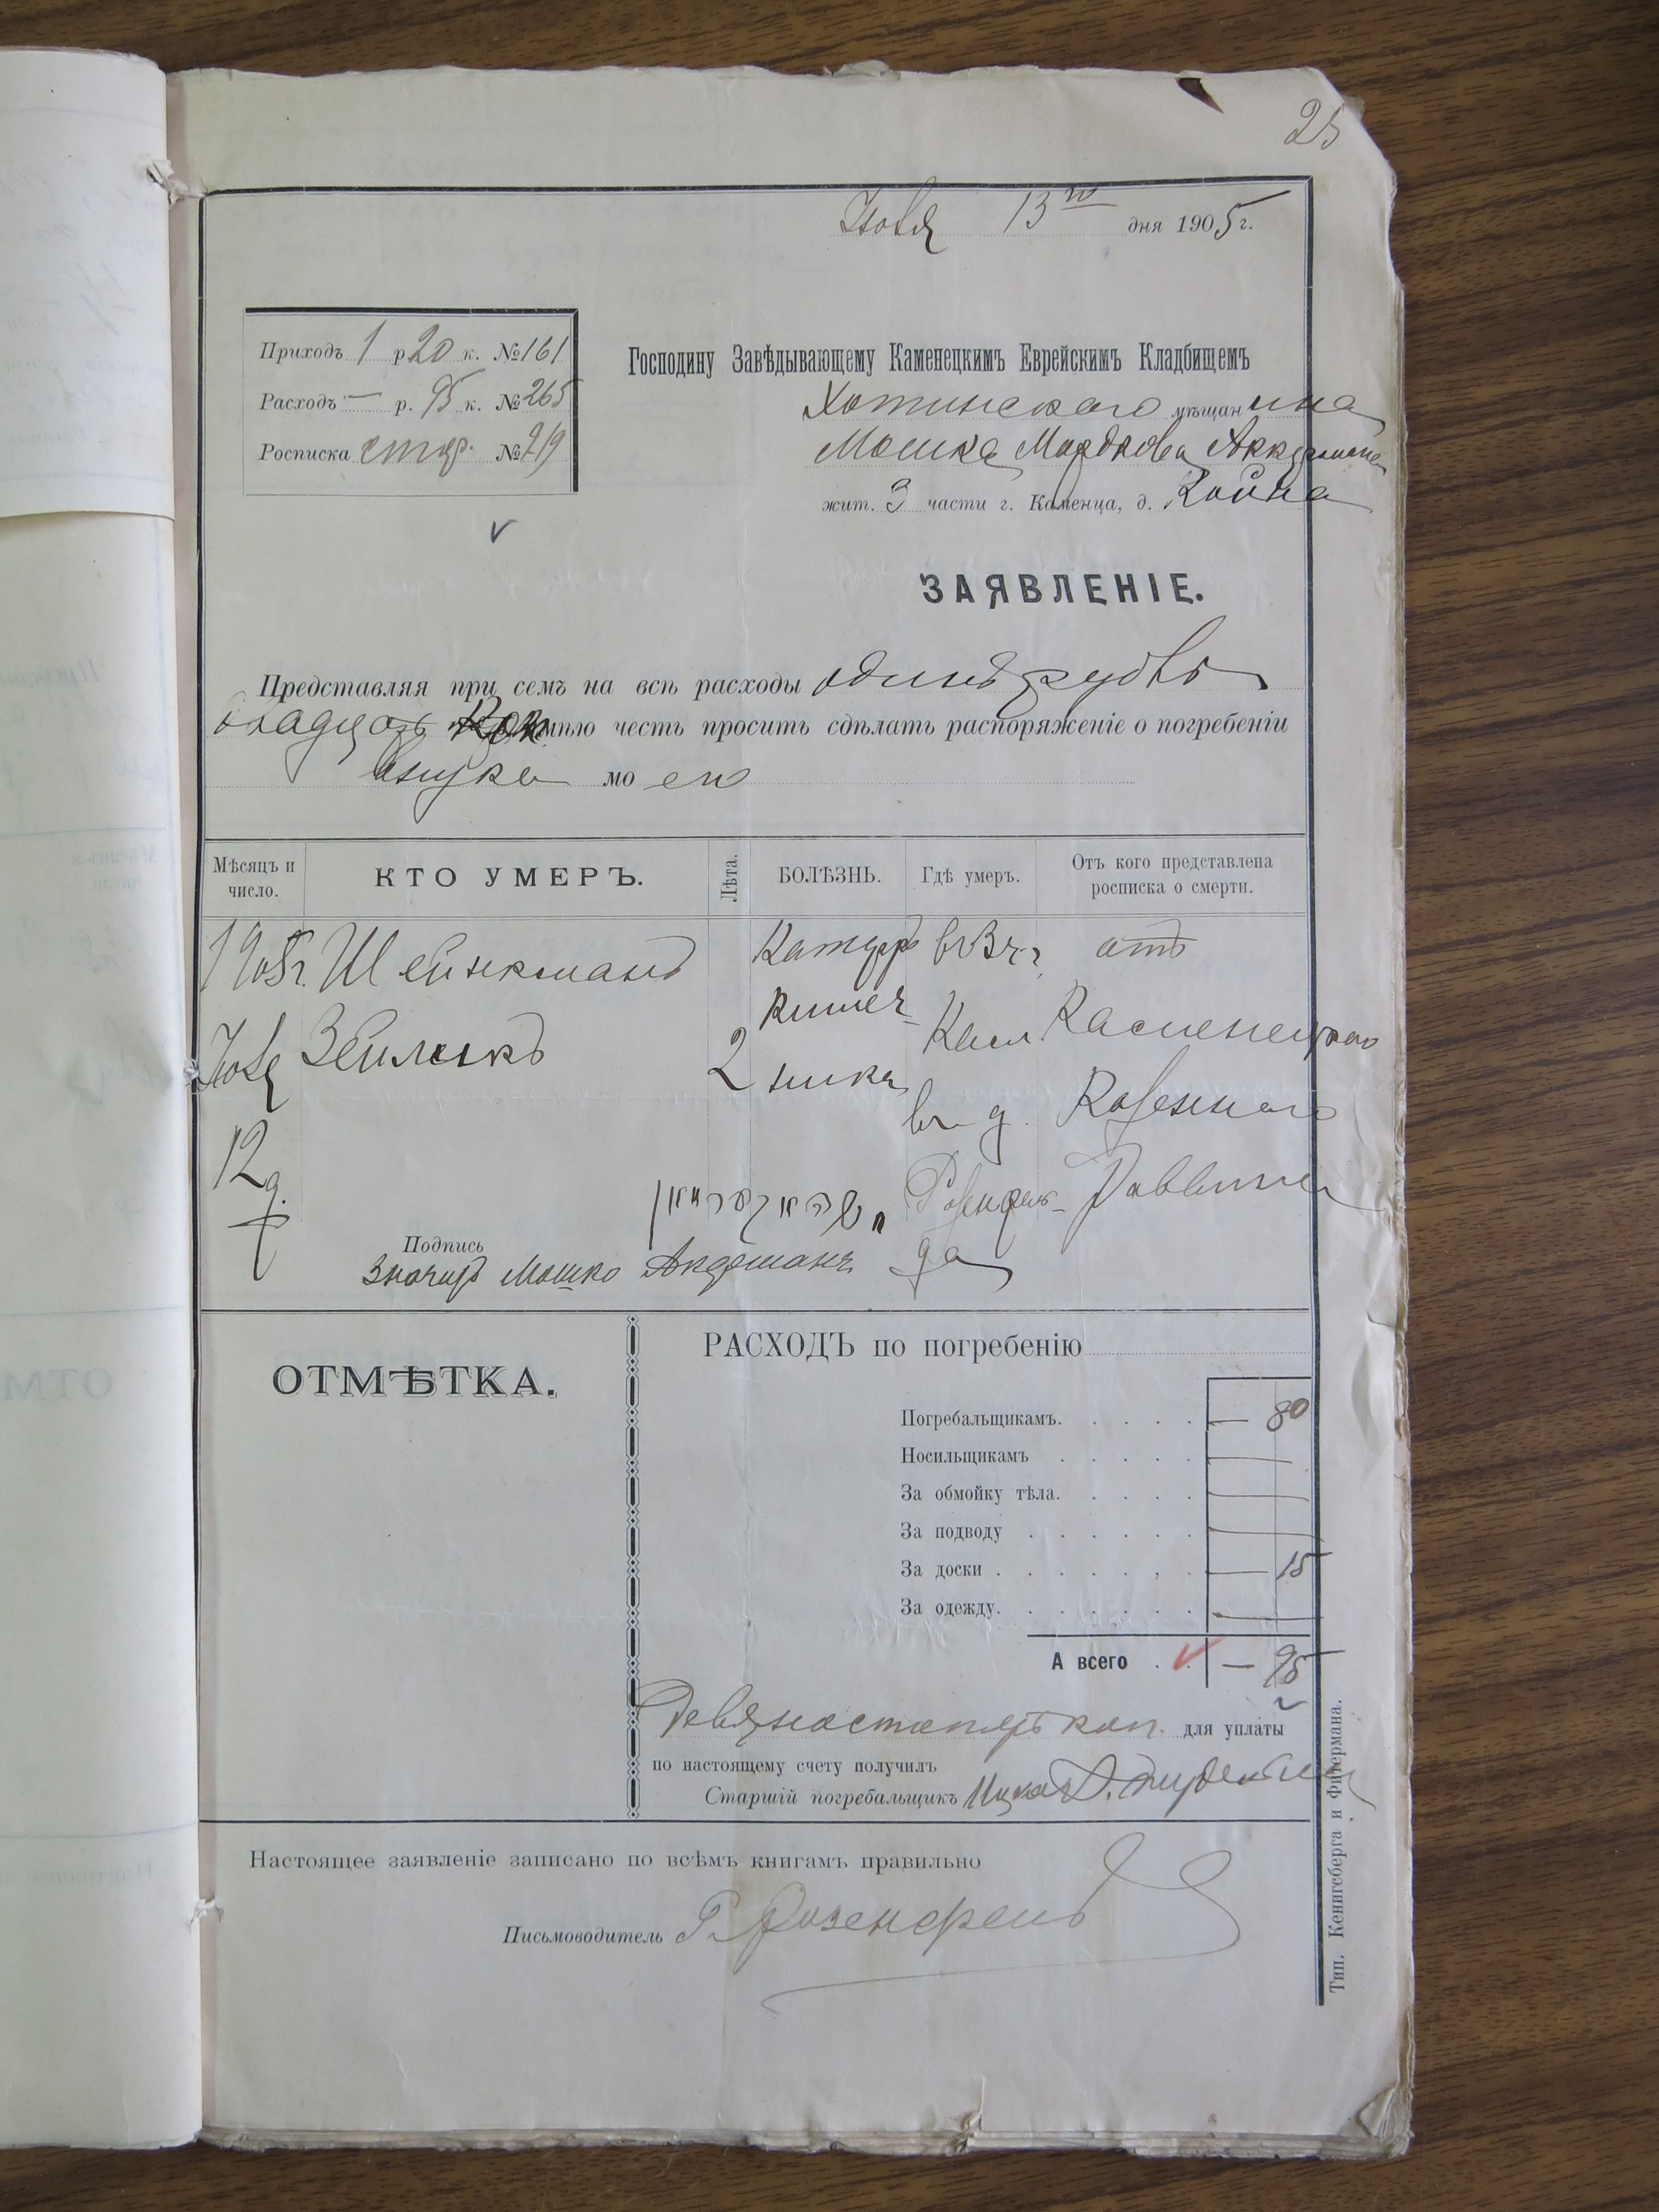 25
Іюля 13го дня 1905 г.
Приходъ 1 р 20 к. № 161
Расходъ — р. 95 к. № 265
Росписка стар. № 219
Господину Завѣдывающему Каменецкимъ Еврейскимъ Кладбищемъ
Хотинскаго мѣщанина
Мошка Мордкова Аккермана
жит. 3 части г. Каменца, д. Койна
ЗАЯВЛЕНІЕ.
Представляя при семъ на всѣ расходы одинъ рубль
двадцать коп имѣю честь просить сдѣлать распоряженіе о погребеніи
внука моего
Мѣсяцъ и число.
КТО УМЕРЪ.
Лѣта.
БОЛѢЗНЬ.
Гдѣ умеръ.
Отъ кого представлена росписка о смерти.
1905г. Шейнкманъ Катарръ въ 3 ч. г. отъ
Іюля Зейликъ 2 кишеч- Кам Каменецкаго
12 д. ника въ д. Казеннаго
Розенфель- Раввина
да
Подпись
Значитъ Мошко Акерманъ
ОТМѢТКА.
РАСХОДЪ по погребенію
Погребальщикамъ. — 80
Носильщикамъ —
За обмойку тѣла. —
За подводу —
За доски — 15
За одежду. —
А всего — 95
Девяностопять коп. для уплаты
по настоящему счету получилъ
Старшій погребальщикъ Ицко
Настоящее заявленіе записано по всѣмъ книгамъ правильно
Письмоводитель Г. Розенфельд
Тип. Кенигсберга и Фитермана.